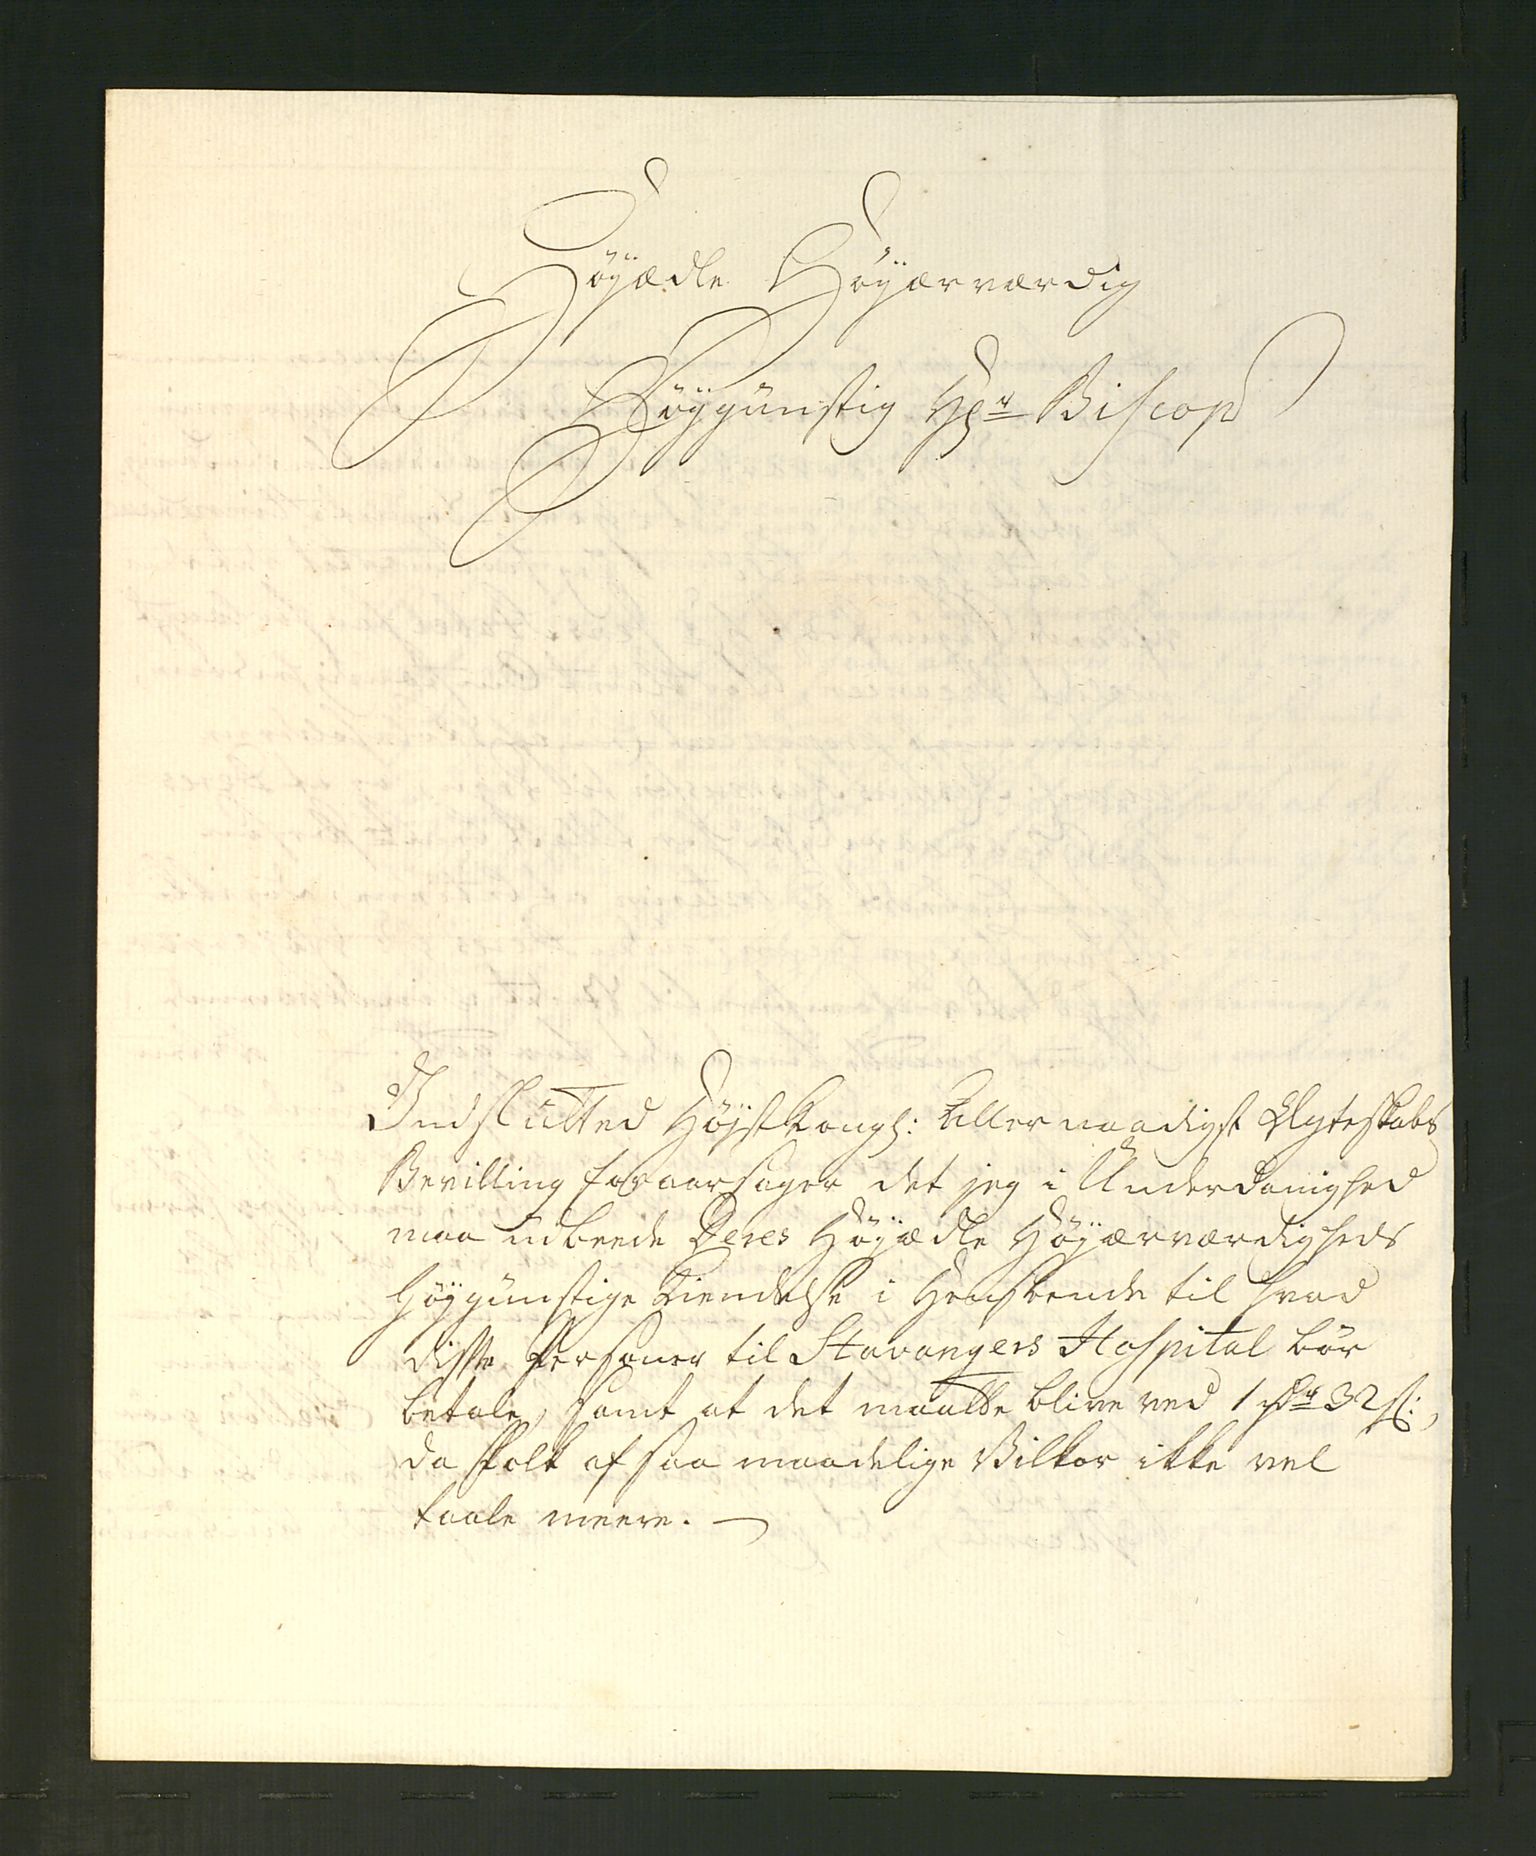 Høÿædle Høÿærværdig
Høÿgünstig Hr Biscop
Indslutted Høÿst Kongl: Allernaadigst Ægteskabs
Bevilling foraarsager det jeg i Underdanighed
maa udbeede Deres Høÿædle Høÿærværdigheds
høÿgünstige Kiendelse i Henseende til hvad
disse Personer til Stavangers Hospital bør
betale, samt at det maatte blive ved 1 rdr 32 sl:,
da Folk af saa maadelige Vilkor ikke vel
taale meere. —